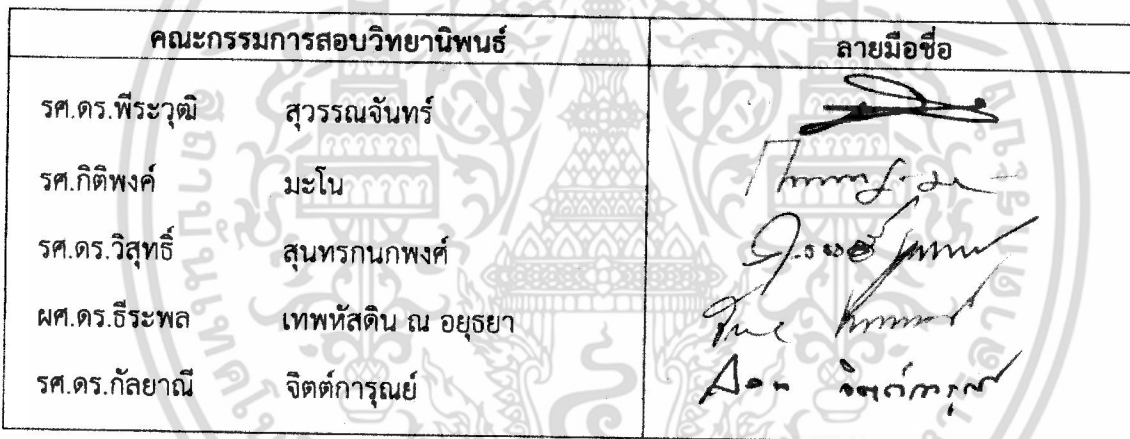 คณะกรรมการสอบวิทยานิพนธ์ ลายมือชื่อ
รศ.ดร.พีระวุฒิ สุวรรณจันทร์
รศ.กิติพงค์ มะโน
รศ.ดร.วิสุทธิ์ สุนทรกนกพงศ์
ผศ.ดร.ธีระพล เทพหัสดิน ณ อยุธยา
รศ.ดร.กัลยาณี จิตต์การุณย์